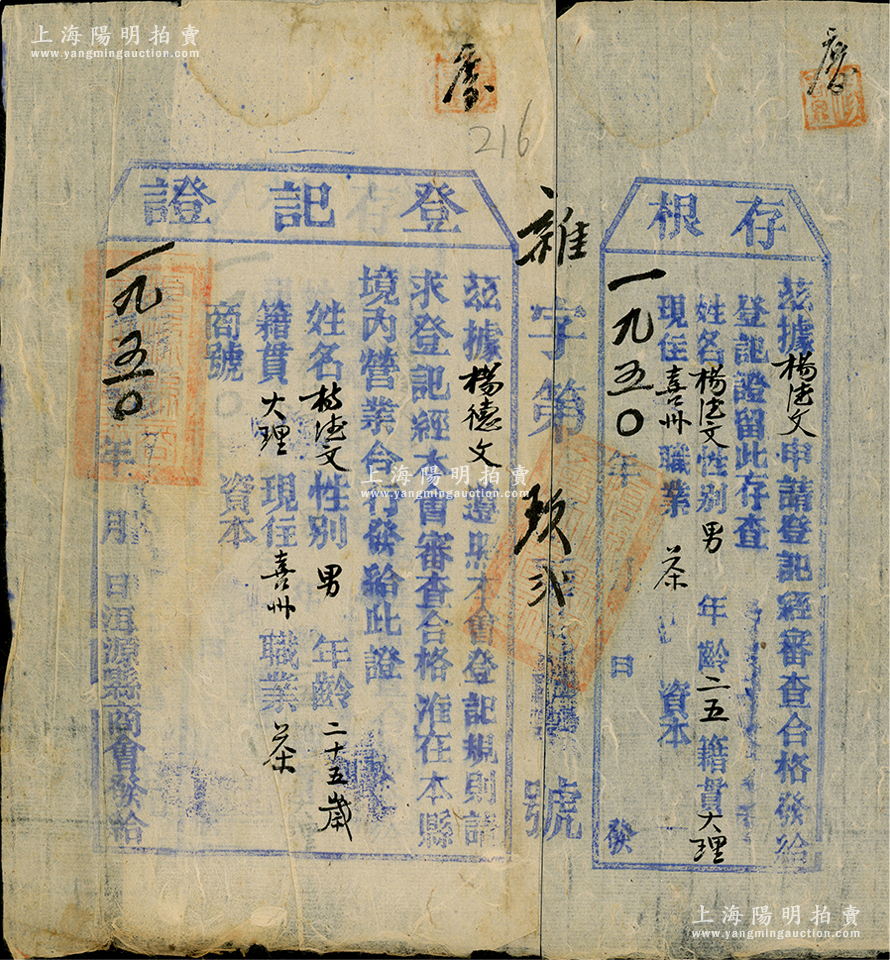 上海陽明拍賣
www.yangmingauction.com
上海陽明拍賣
www.yangmingauction.com
216
存根
茲據楊德文申請登記經審查合格發給
登記證留此存查
姓名楊德文性別男 年齡二五籍貫大理
現住喜州職業 茶 資本
一九五〇年 月 日 發
雜字第 玖弍 號
登記證
茲據楊德文遵照本會登記規則請
求登記經本會審查合格准在本縣
境內營業合行發給此證
姓名楊德文性別男 年齡二十五歲
籍貫大理現住喜州職業茶
商號 資本
一九五〇年 月 日洱源縣商會發給
上海陽明拍賣
www.yangmingauction.com
上海陽明拍賣
www.yangmingauction.com